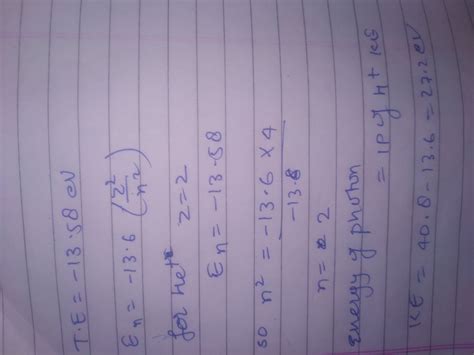 T.E = -13.58 eV
En = -13.6 (z²/n²)
for He+ z=2
En = -13.58
so n² = -13.6 × 4 / -13.6
n = 2
energy of photon
= IP of H + KE
KE = 40.8 - 13.6 = 27.2 eV